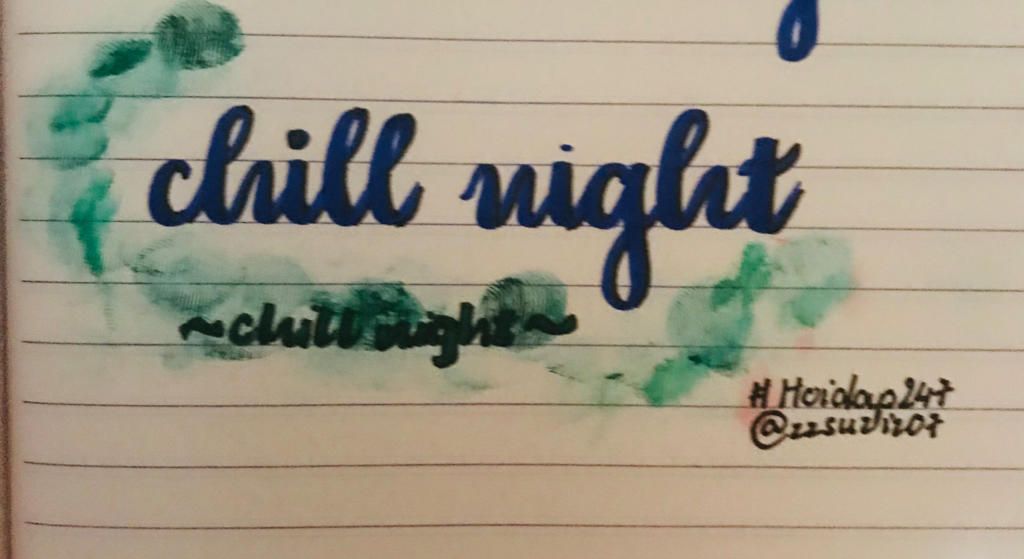 chill night
~chill night~
# Hoidap247
@zzsuziz07